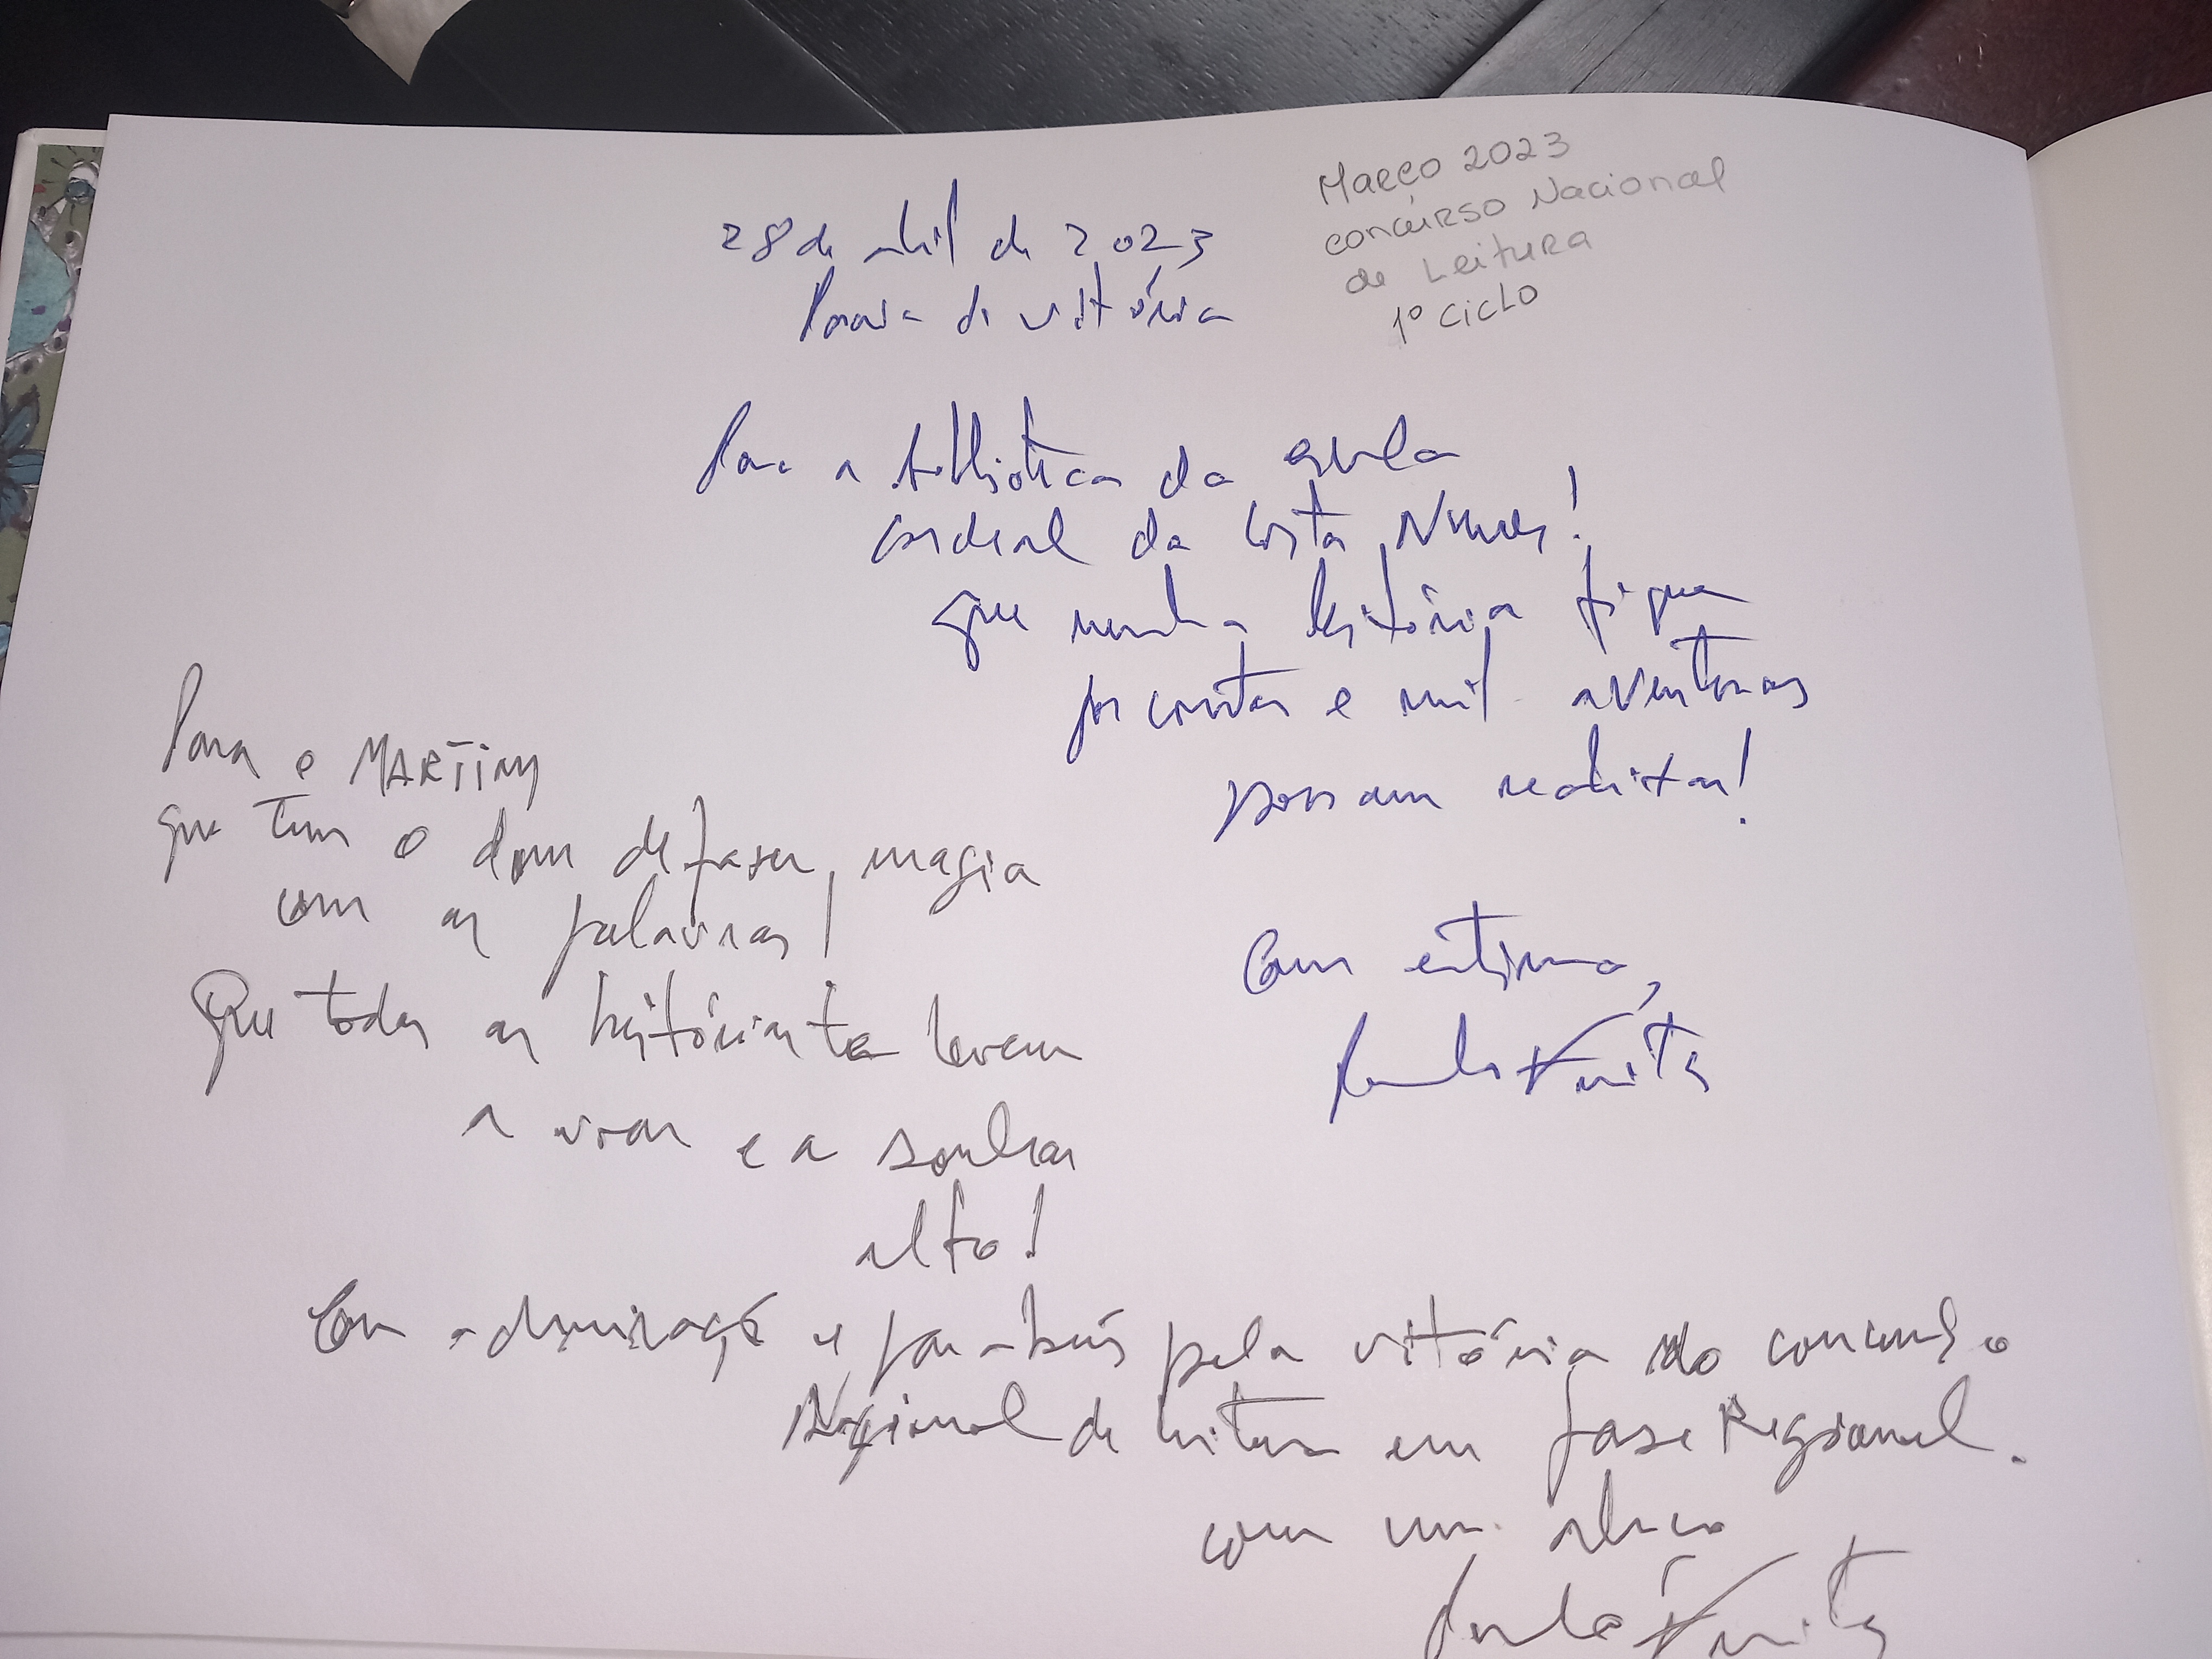 Março 2023
concurso Nacional
de Leitura
1º ciclo
28 de abril de 2023
Praia da vitória
Para a biblioteca da escola
cardeal da costa Nunes!
que nenhuma história fique
por contar e mil aventuras
possam realizar!
Com estima,
Para o MARTIM
que tem o dom de fazer magia
com as palavras!
Que todas as histórias te levem
a voar e a sonhar
alto!
Com admiração e parabéns pela vitória do concurso
Nacional de leitura em fase Regional.
com um abraço